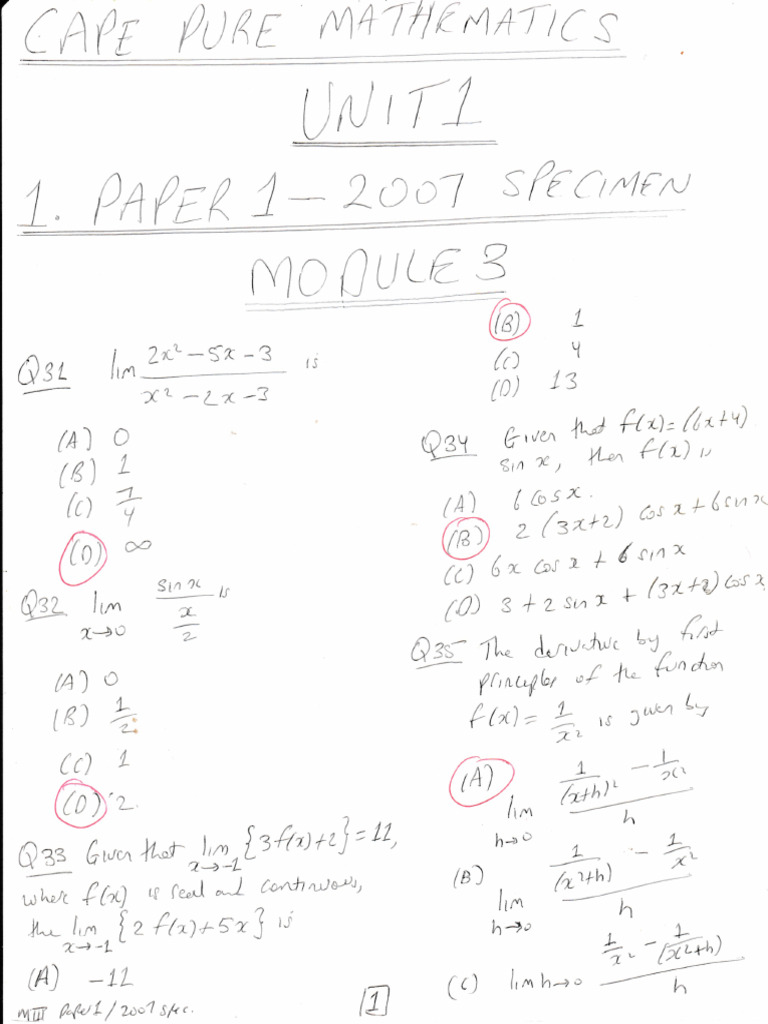 CAPE PURE MATHEMATICS
UNIT 1
1. PAPER 1 – 2007 SPECIMEN
MODULE 3
Q31 lim (2x² – 5x – 3)/(x² – 2x – 3) is
(A) 0
(B) 1
(C) 7/4
(D) ∞
Q32 lim x→0 (sin x)/(x/2) is
(A) 0
(B) 1/2
(C) 1
(D) 2.
Q33 Given that lim x→-1 {3f(x)+2} = 11,
where f(x) is real and continuous,
the lim x→-1 {2f(x)+5x} is
(A) –11
(B) 1
(C) 4
(D) 13
Q34 Given that f(x) = (6x+4)
sin x, then f(x) is
(A) 6 cos x.
(B) 2 (3x+2) cos x + 6 sin x
(C) 6x cos x + 6 sin x
(D) 3 + 2 sin x + (3x+2) cos x
Q35 The derivative by first
principles of the function
f(x) = 1/x² is given by
(A) lim h→0 (1/(x+h)² – 1/x²)/h
(B) lim h→0 (1/(x²+h) – 1/x²)/h
(C) lim h→0 (1/x² – 1/(x²+h))/h
MIII Paper 1 / 2007 Spec.
1